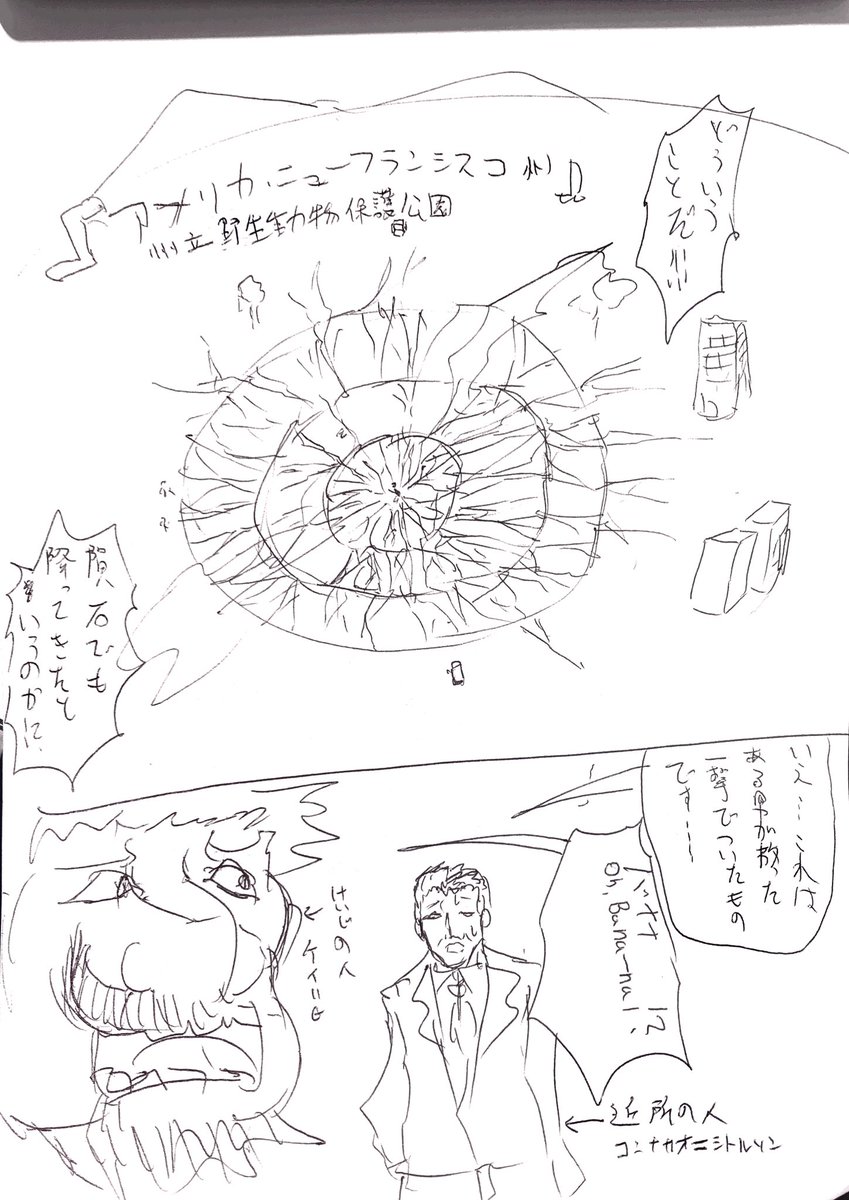 どういう
ことだ!!!
アメリカ・ニューフランシスコ州
州立野生動物保護公園
隕石でも
降ってきたと
いうのかに
いえ…これは
ある男が放った
一撃でついたもの
です…
バッナナ
Oh, Bana-na!?
けいじの人
近所の人
コンナカオニシトルソン